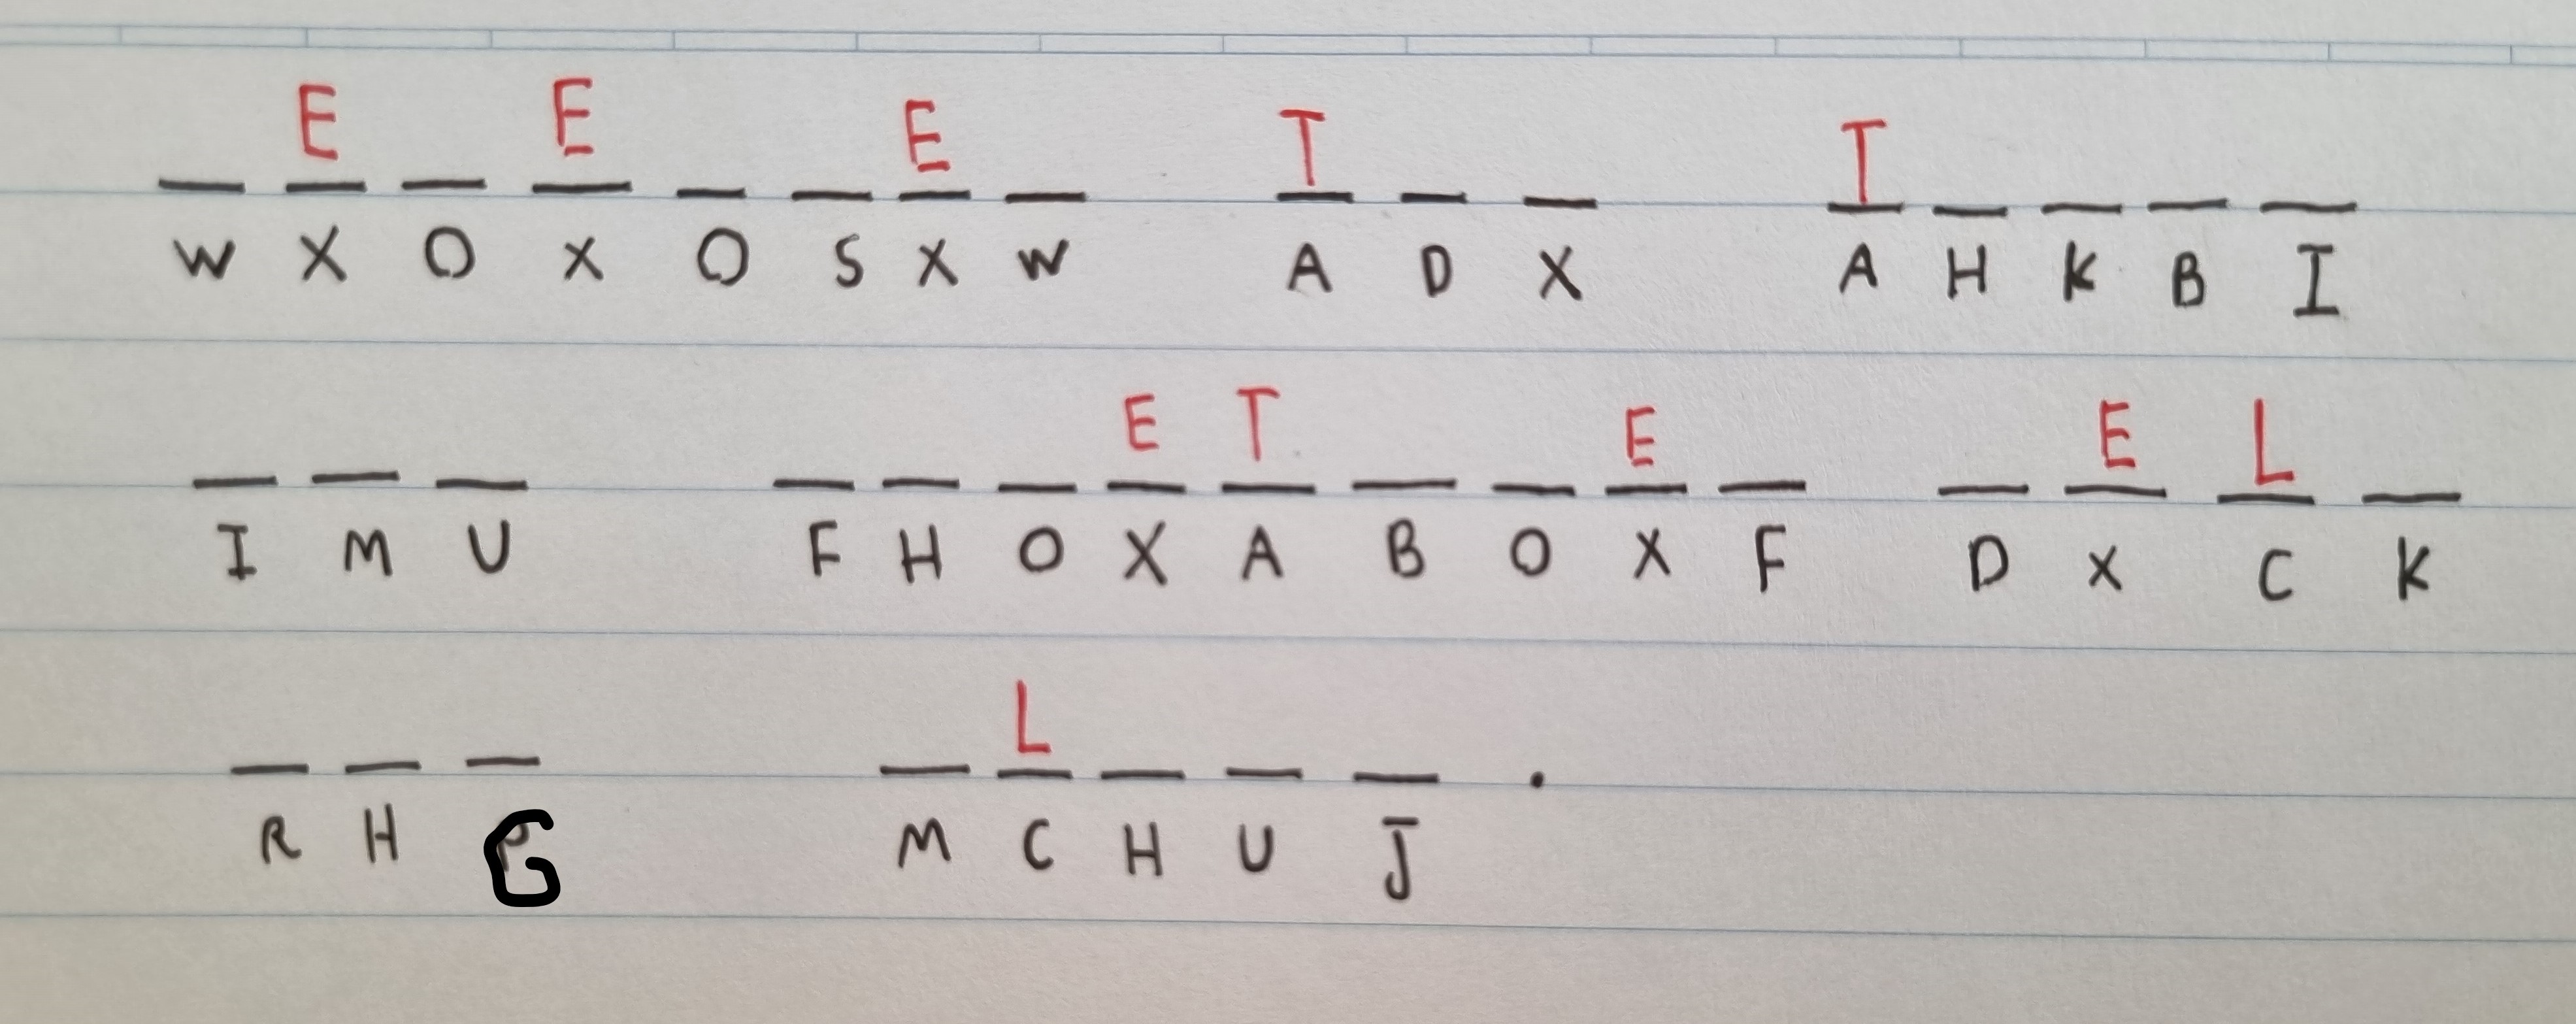 E E E T T
W X O X O S X W A D X A H K B I
E T E E L
I M U F H O X A B O X F D X C K
L
R H G M C H U J .